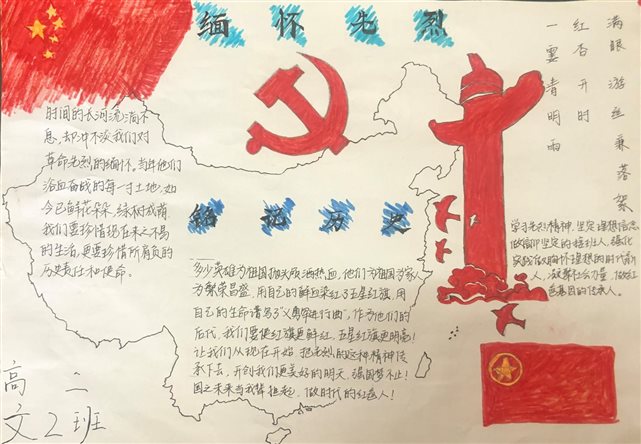 缅怀先烈
满眼游丝兼落絮
红杏开时
一霎清明雨
时间的长河流淌不
息,却冲不淡我们对
革命先烈的缅怀。当年他们
浴血奋战的每一寸土地,如
今已鲜花朵朵,绿树成荫.
我们要珍惜现在来之不易
的生活,更要珍惜所肩负的
历史责任和使命。
铭记历史
多少英雄为祖国抛头颅洒热血,他们为祖国为家人
为繁荣昌盛,用自己的鲜血染红了五星红旗,用
自己的生命谱写了"义勇军进行曲",作为他们的
后代,我们要使红旗更鲜红,五星红旗更明亮!
让我们从现在开始 把先烈的这种精神传
承下去,开创我们更美好的明天,强国梦不止!
国之未来当我辈担起,做时代的红色人!
学习先烈精神,坚定理想信念
做信仰坚定的接班人,强化
实践做胸怀理想的时代新
人,凝聚社会力量,做红
色基因的传承人。
高二
文2班